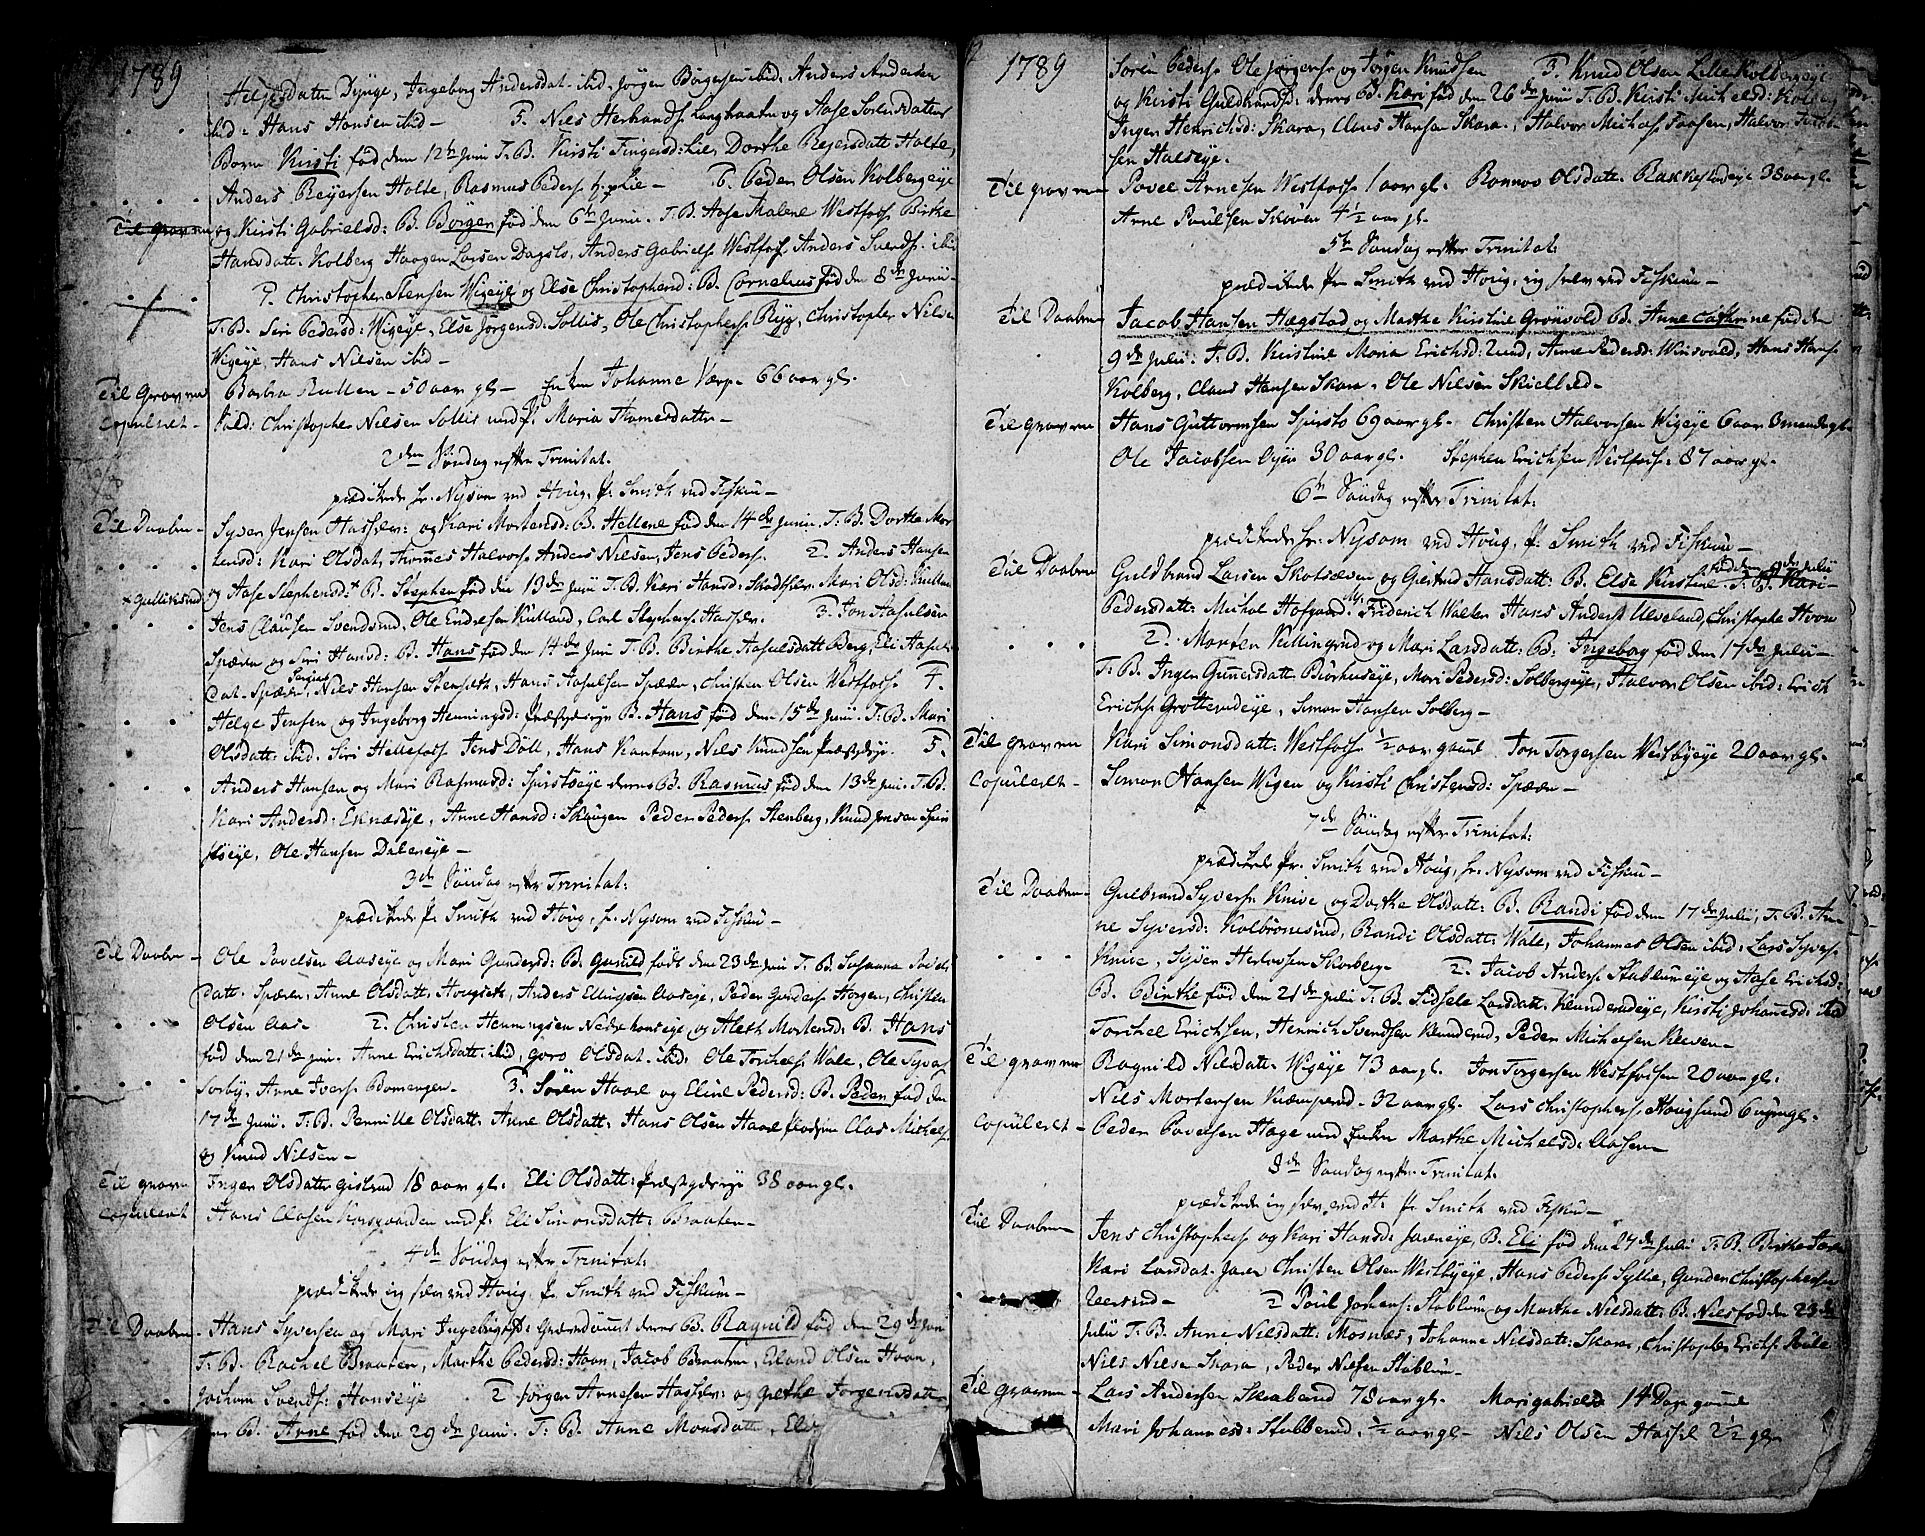 1789
Heljesdatter Dynge, Ingeborg Andersdat. ibid. Jørgen Børgersen ibid. Anders Andersen
ibid: Hans Hansen ibid - 5. Niels Herbrands. Langbraatn og Aase Sørensdatter
Barn Kirsti fød den 12te Juni T. B. Kirsti Lie, Dorthe Rejersdatt Holte,
Anders Reyersen Holte, Rasmus Peders. Lie - 6. Peder Olsen Kolbergeye
Til graven og Kirsti Gabrielsd: B. Børgen fød den 6te Junii. T. B. Aase Malene Westfoss Birthe
Hansdatt. Kolberg Haagen Larsen Dagslo, Anders Gabriels. Westfos. Anders Svends. ibid
7. Christopher Stensen Wigeye og Else Christophersd: B. Cornelius fød den 8de Junii -
T. B. Siri Pedersd: Wigeye, Else Jørgensd. Sollis, Ole Christophers. Ryg, Christopher Nilsen
Wigeye, Hans Nilsen ibid -
Til Graven Barbra Rudden - 50 aar gl - Enken Johanne Værp - 66 aar gl.
Copuleret Sold: Christopher Nilsen Sollis med p. Maria Hansdatter -
2den Søndag efter Trinitat.
prædikede hr. Nysom ved Houg, hr. Smith ved Fiskum -
Til Daaben - Syver Jensen Hasselv: og Kari Mortensd: B. Hellene fød den 14de Junii T. B. Dorthe Mor
tensd: Kari Olsdat, Thomes Halvors. Anders Nilsen, Jens Peders. 2. Anders Hansen
+ Gulliksrud og Aase Stephensd + B. Stephen fød den 13de Juni T. B. Kari Hansd: Skodselv. Mari Olsd: Kulland
Jens Clausen Svendsrud, Ole Endresen Kulland, Carl Stephens. Hasselv. 3. Jon Aaslulsen
Spæren og Siri Hansd: B. Hans fød den 14de Juni T. B. Birthe Aaslulsdatt Berg, Eli Aaslul
dat. Spæren, Nils Hansen Stenseth, Hans Aaslulsen Spæren, Christen Olsen Westfoss. 4.
Helge Jensen og Ingeborg Henningsd: Præstegrejen B. Hans fød den 15de Junii. T. B. Mari
Olsdatt: ibid. Siri Hellefoss Jens Döll, Hans Kantom, Nils Knudsen Præstgrje. 5.
Anders Hansen og Mari Rasmusd: Spirstøeye deres B. Rasmus fød den 13de Juni. T. B.
Kari Andersd: Eknæseye, Anne Hansd: Skaugen Peder Peders. Stenberg, Knud Jensen Spir
støeye, Ole Hansen Daleneye -
3de Søndag efter Trinitat:
prædikede hr. Smith ved Houg, hr. Nysom ved Fiskum -
Til Daaben - Ole Povelsen Aaseye og Mari Gundersd: B. Gunild født den 23de Juni T. B. Susanna Povels
datt. Spæren, Anne Olsdatt. Hougseth, Anders Ellingsen Aaseye, Peder Gunders. Horgen, Christen
Olsen Aas - 2. Christen Henningsen Nederhonseye og Aleth Mortensd: B. Hans
fød den 21de Juni. Anne Erichsdatt: ibid, Goro Olsdat. ibid: Ole Torchels. Wale, Ole Syvers.
Sorby, Arne Ivers. Bomengen - 3. Søren Haarl og Eline Pedersd: B. Peder fød den
17de Junii. T. B. Pernille Olsdatt. Anne Olsdatt. Hans Olsen Haarl Clas Michels.
og Knud Nilsen -
Til graven Inger Olsdatter Gistrud 18 aar gl. Eli Olsdatt: Præstgdeje 38 aar gl.
Copuleret Hans Clasen Korsgaarden med p. Eli Simonsdatt: Braaten -
4de Søndag efter Trinitat:
prædikede jeg selv ved Houg, hr. Smith ved Fiskum -
Til Daaben - Hans Syversen og Mari Ingebrigtsd: deres B. Ragnild fød den 29de Juni
T. B. Rachel Braaten, Marthe Pedersd: Hoen, Jacob Braaten, Erland Olsen Hoen,
Jochum Svends: Honseye 2 Jørgen Arnesen Hasselv: og Grethe Jorgensdatter
B. Arne fød den 29de Juni. T. B. Anne Monsdatt,
1789
Søren Peders. Ole Jørgens. og Jørgen Knudsen 3. Knud Olsen Lille Kolbergeye
og Kirsti Guldbrandsd: deres B. Kari fød den 26de Junii T. B. Kirsti Michelsd: Kolberg
Inger Henrichsd: Skara, Claus Hansen Skara, Halvor Michels. Faasen, Halvor
sen Halseye.
Til graven Povel Arnesen Westfoss 1 aar gl. Ronnov Olsdatt. Rakkestadeye 38 aar gl.
Arne Paulsen Skoven 4½ aar gl.
5te Søndag efter Trinitat:
prædikede hr. Smith ved Houg, jeg selv ved Fiskum -
Til Daaben Jacob Hansen Hægstad og Marthe Kirstine Grønvold B. Anne Cathrine fød den
9de Julii: T. B. Kirstine Maria Erichsd: Lund, Anne Pedersd: Winsvold, Hans Hans.
Kolberg, Claus Hansen Skara - Ole Nilsen Skielbred -
Til graven Hans Guttormsen Spirsto 69 aar gl. Christen Halvorsen Wigeye 6 aar 3 maaneder gl.
Ole Jacobsen Øyen 30 aar gl. Stephen Erichsen Westfoss: 87 aar gl.
6te Søndag efter Trinitat:
prædikede hr. Nysom ved Houg, hr. Smith ved Fiskum -
Til Daaben Guldbrand Larsen Skotselven og Giertrud Hansdatt: B. Else Kirstine fød den 9de Julii T. B. Kari
Pedersdatt: Michel Hofgaard, Friderich Walter, Hans Anders. Ulveland, Christopher Hoen
2. Morten Killingrud og Mari Larsdatt: B. Ingeborg fød den 17de Julii -
T. B. Inger Gunersdatt Biørhuseye, Mari Pedersd: Solbergeye, Halvor Olsen ibid: Erich
Erichs. Grotterudeye, Simon Hansen Solberg -
Til graven Kari Simonsdatt. Westfoss ½ aar gamel Jon Torgersen Westbyeye 20 aar gl.
Copuleret - Simon Hansen Wigen og Kirsti Christensd: Spæren -
7de Søndag efter Trinitat:
prædikede hr. Smith ved Houg, hr. Nysom ved Fiskum -
Til Daaben - Gulbrand Syvers. Knive og Dorthe Olsdatt: B. Randi fød den 17de Julii, T. B. An
ne Syversd: Kolbrønesrud, Randi Olsdatt: Wale, Johannes Olsen ibid: Lars Syvers.
Knive, Syver Herlovsen Skorberg - 2. Jacob Anders. Stablumeye og Aase Erichsd:
B. Birthe fød den 21de Julii T. B. Sidsele Larsdatt. Klunderudeye, Kirsti Johansd: ibid
Torchel Erichsen, Henrich Svendsen Klunderud, Peder Michelsen Kleven -
Til graven Ragnild Nilsdatt. Wigeye 73 aar gl. Jon Torgersen Westfossen 20 aar gl.
Nils Mortensen Kræmperud - 32 aar gl. Lars Christophers. Hougsund 6 uger gl.
Copuleret - Peder Povelsen Hage med Enken Marthe Michelsd: Aasen -
8de Søndag efter Trinitat.
prædikede jeg selv ved H. hr. Smith ved Fiskum -
Til Daaben - Jens Christophers. og Kari Hansd: Jareneye, B. Eli fød den 27de Julii T. B. Birthe Jaren
Kari Larsdat. Jaren Christen Olsen Westbyeye, Hans Peders. Sylte, Gunder Christophersen
Ulersrud - 2 Poul Johans: Stablum og Marthe Nilsdatt: B. Nils fød den 23de
Julii T. B. Anne Nilsdatt: Mosnes, Johanne Nilsdatt: Skara, Christopher Erichs.
Nils Nilsen Skara, Peder Nilsen Stablum -
Til Graven - Lars Andersen Skabrud 78 aar gl. Mari Gabrielsd 14 Dage gamel
Mari Johannesd: Stubberud ½ aar gl - Nils Olsen Hassel 2½ gl.